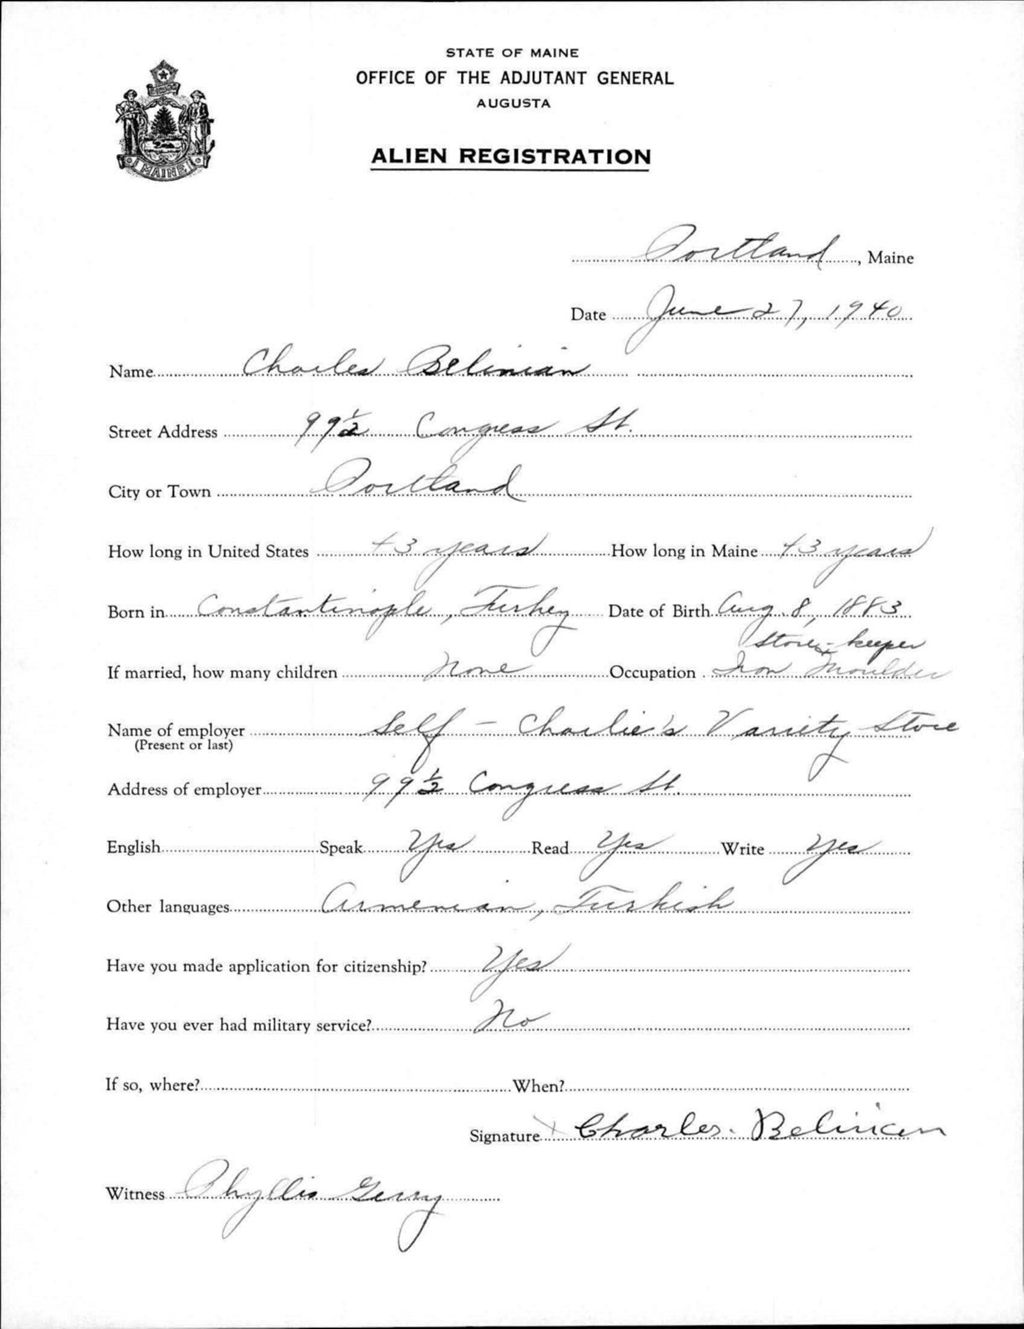 STATE OF MAINE
OFFICE OF THE ADJUTANT GENERAL
AUGUSTA
ALIEN REGISTRATION
MAINE
Portland, Maine
Date June 27, 1940
Name Charles Belinian
Street Address 99 1/2 Congress St.
City or Town Portland
How long in United States 43 years How long in Maine 43 years
Born in Constantinople, Turkey Date of Birth Aug 8, 1883
Store-keeper
If married, how many children None Occupation Iron Moulder
Name of employer Self - Charlie's Variety Store
(Present or last)
Address of employer 99 1/2 Congress St.
English Speak Yes Read Yes Write Yes
Other languages Armenian, Turkish
Have you made application for citizenship? Yes
Have you ever had military service? No
If so, where? When?
Signature x Charles. Belinian
Witness Phyllis Gerry